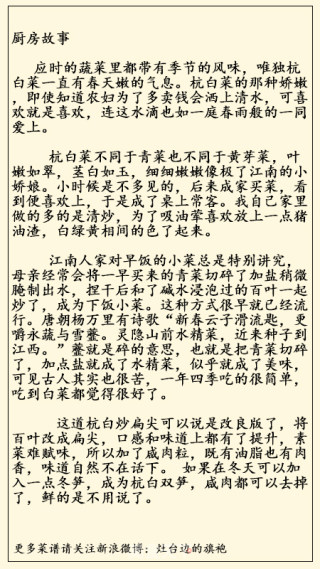 厨房故事
应时的蔬菜里都带有季节的风味，唯独杭
白菜一直有春天嫩的气息。杭白菜的那种娇嫩
，即使知道农妇为了多卖钱会洒上清水，可喜
欢就是喜欢，连这水滴也如一庭春雨般的一同
爱上。
杭白菜不同于青菜也不同于黄芽菜，叶
嫩如翠，茎白如玉，细细嫩嫩像极了江南的小
娇娘。小时候是不多见的，后来成家买菜，看
到便喜欢上，于是成了桌上常客。我自己家里
做的多的是清炒，为了吸油荤喜欢放上一点猪
油渣，白绿黄相间的色了起来。
江南人家对早饭的小菜总是特别讲究，
母亲经常会将一早买来的青菜切碎了加盐稍微
腌制出水，捏干后和了碱水浸泡过的百叶一起
炒了，成为下饭小菜。这种方式很早就已经流
行。唐朝杨万里有诗歌“新春云子滑流匙，更
嚼永蔬与雪虀。灵隐山前水精菜，近来种子到
江西。”虀就是碎的意思，也就是把青菜切碎
了，加点盐就成了水精菜，似乎就成了美味，
可见古人其实也很苦，一年四季吃的很简单，
吃到白菜都觉得很好了。
这道杭白炒扁尖可以说是改良版了，将
百叶改成扁尖，口感和味道上都有了提升，素
菜难赋味，所以加了咸肉粒，既有油脂也有肉
香，味道自然不在话下。 如果在冬天可以加
入一点冬笋，成为杭白双笋，咸肉都可以去掉
了，鲜的是不用说了。
更多菜谱请关注新浪微博：灶台边的旗袍